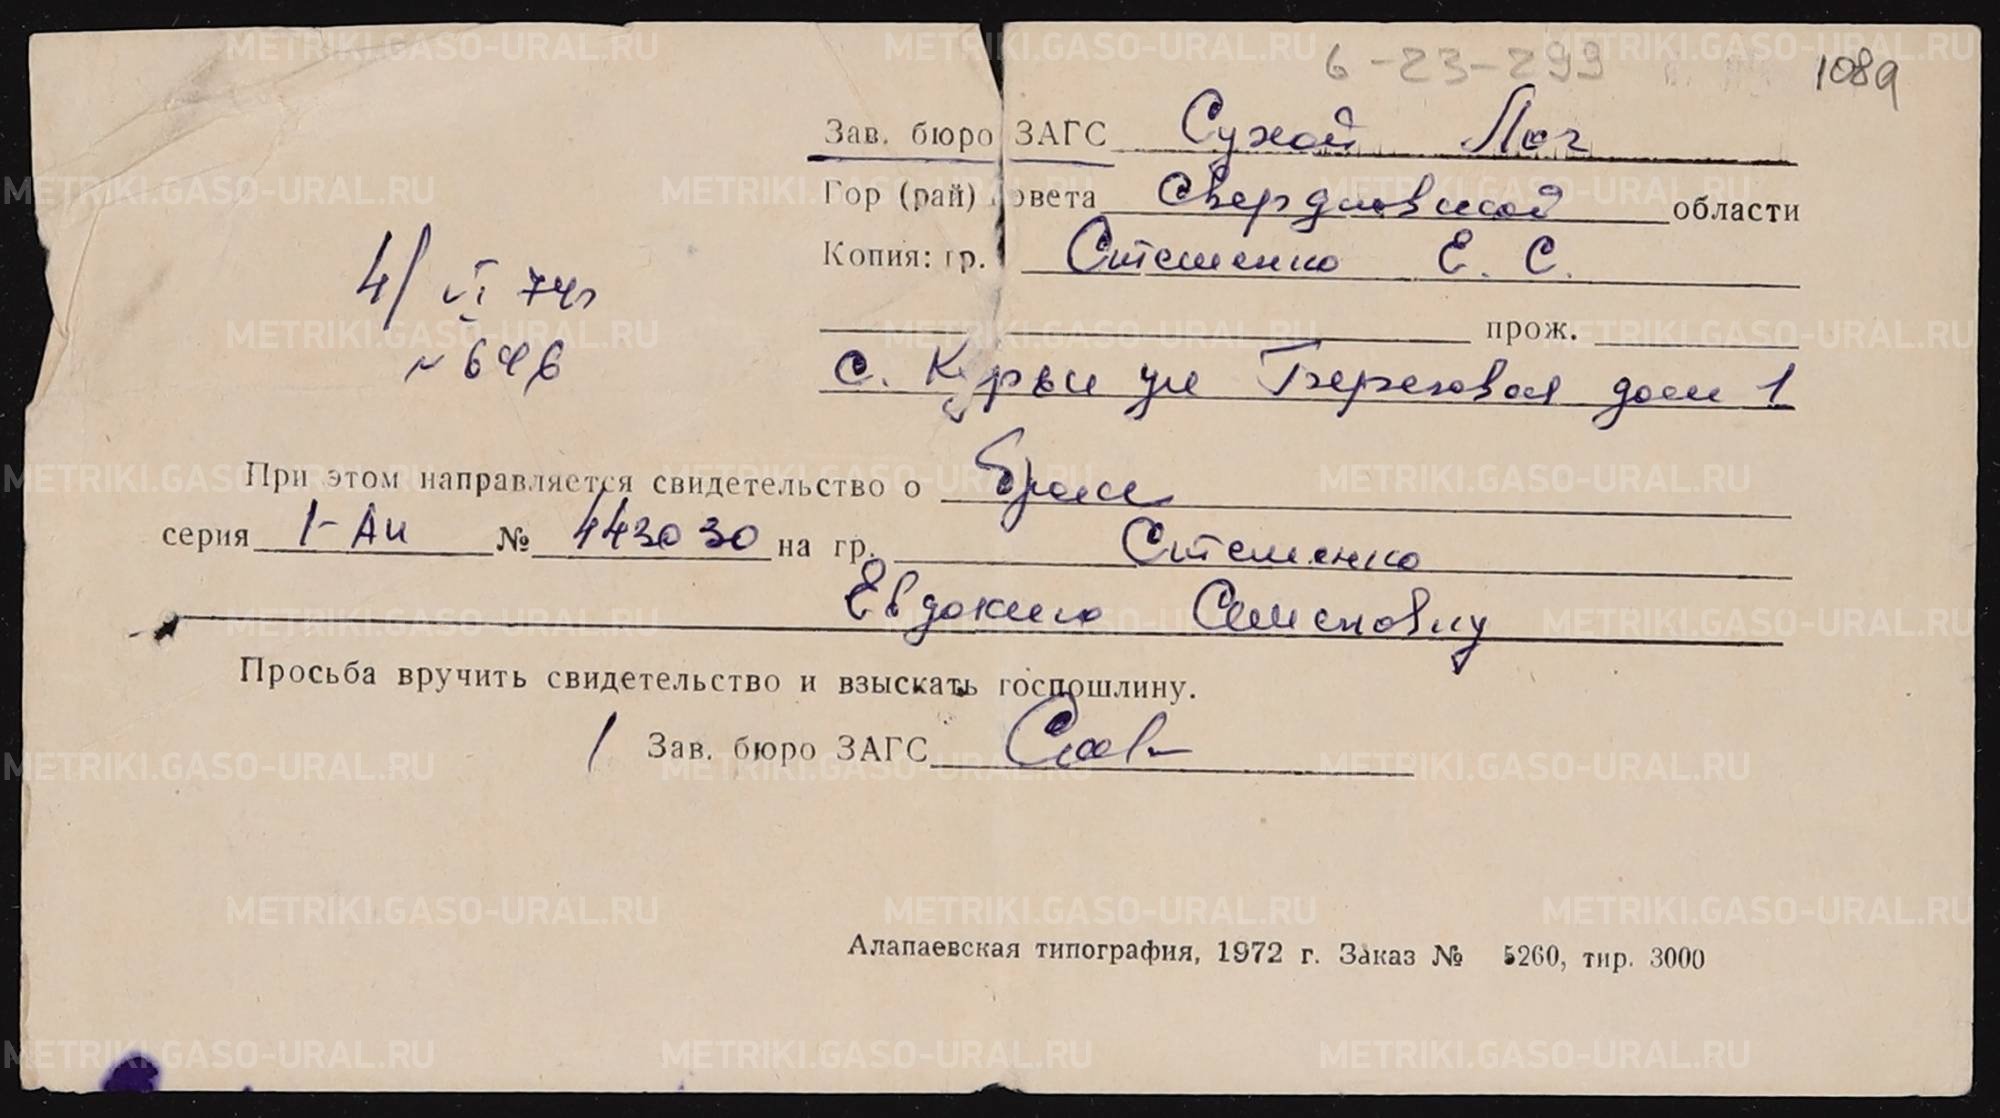 6-23-299 1089
Зав. бюро ЗАГС Сухой Лог
Гор (рай) совета Свердловской области
Копия: гр. Стешенко Е. С.
прож.
с. Курьи ул Береговая дом 1
4/VI 74г
№ 646
При этом направляется свидетельство о браке
серия 1-АИ № 443030 на гр. Стешенко
Евдокию Семеновну
Просьба вручить свидетельство и взыскать госпошлину.
Зав. бюро ЗАГС
Алапаевская типография, 1972 г. Заказ № 5260, тир. 3000
METRIKI.GASO-URAL.RU